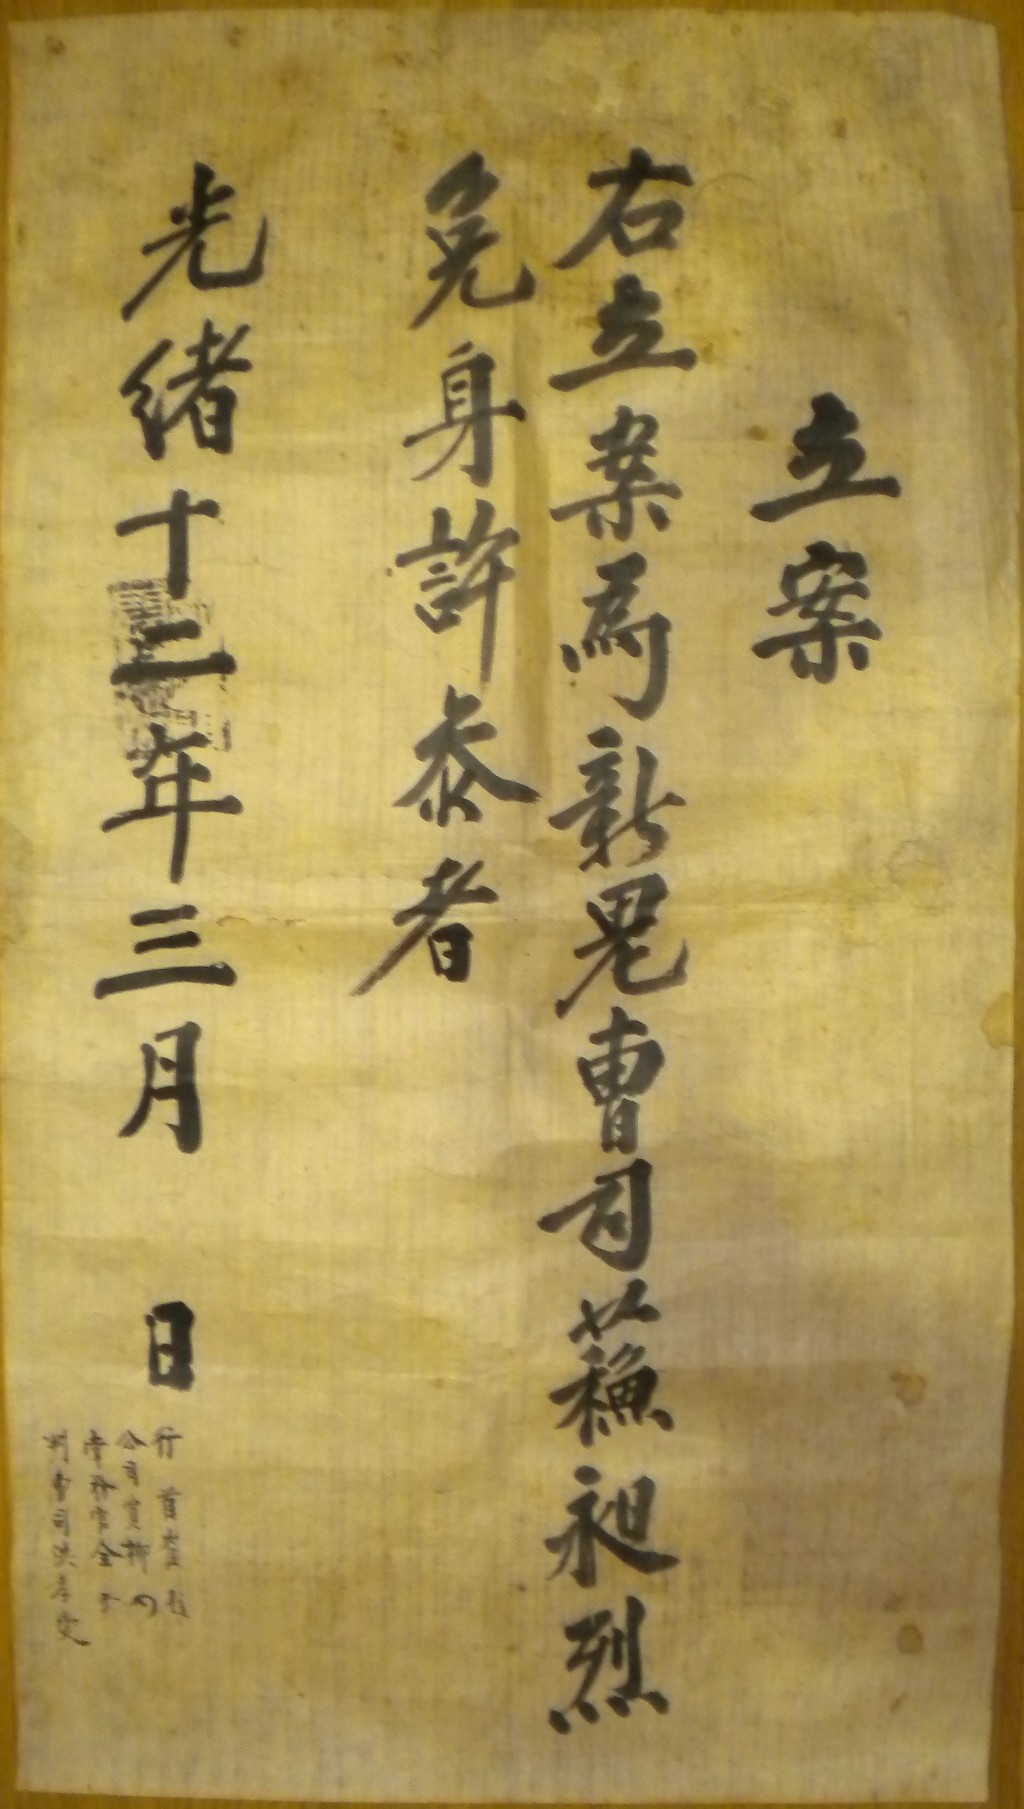 立案
右立案爲新恩曹司蘓昶烈
免身許叅者
光緒十二年三月 日
行首
公司
金
刑曹司洪